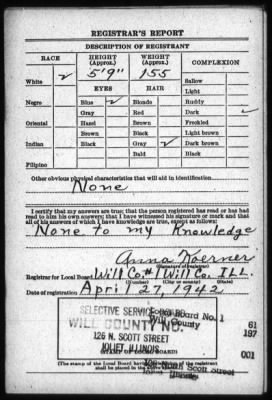 REGISTRAR'S REPORT
DESCRIPTION OF REGISTRANT
RACE HEIGHT (Approx.) WEIGHT (Approx.) COMPLEXION
White ✓ 5'9" 155 Sallow
EYES HAIR Light
Negro Blue ✓ Blonde Ruddy
Gray Red Dark ✓
Oriental Hazel Brown Freckled
Brown Black Light brown
Indian Black Gray ✓ Dark brown
Bald Black
Filipino
Other obvious physical characteristics that will aid in identification
None
I certify that my answers are true; that the person registered has read or has had
read to him his own answers; that I have witnessed his signature or mark and that
all of his answers of which I have knowledge are true, except as follows:
None to my Knowledge
Anna Koerner
(Signature of registrar)
Registrar for Local Board Will Co. #1 Will Co. ILL
(Number) (City or county) (State)
Date of registration April 27, 1942
SELECTIVE SERVICE Local Board No. 1
WILL COUNTY County
126 N. SCOTT STREET
JOLIET, ILLINOIS
(STAMP OF LOCAL BOARD)
61
197
001
(The stamp of the Local Board
shall be placed in the
Scott Street
Illinois